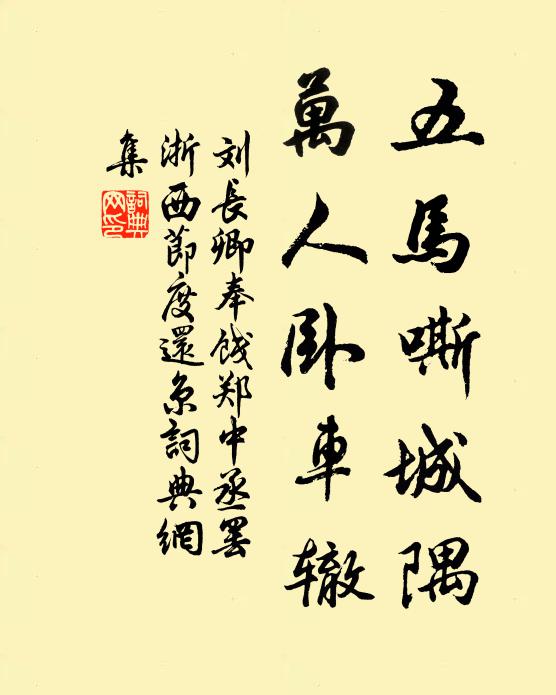 五馬嘶城隅
萬人卧車辙
刘長卿奉饯郑中丞罢
浙西節度還京詞典網
集
詞典网印